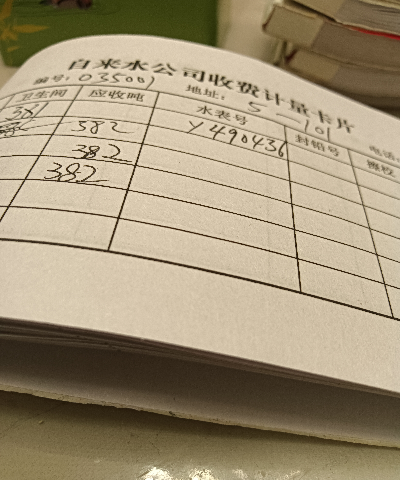 自来水公司收费计量卡片
编号: 035001 地址: 5-101 电话:
卫生间 应收吨 水表号 封铅号
381 382 Y490436
382
382